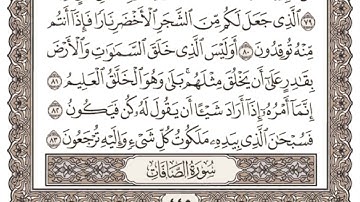 ٧٩ ٱلَّذِى جَعَلَ لَكُم مِّنَ ٱلشَّجَرِ ٱلْأَخْضَرِ نَارًا فَإِذَآ أَنتُم
مِّنْهُ تُوقِدُونَ ٨٠ أَوَلَيْسَ ٱلَّذِى خَلَقَ ٱلسَّمَٰوَٰتِ وَٱلْأَرْضَ
بِقَٰدِرٍ عَلَىٰٓ أَن يَخْلُقَ مِثْلَهُم بَلَىٰ وَهُوَ ٱلْخَلَّٰقُ ٱلْعَلِيمُ ٨١
إِنَّمَآ أَمْرُهُۥٓ إِذَآ أَرَادَ شَيْـًٔا أَن يَقُولَ لَهُۥ كُن فَيَكُونُ ٨٢
فَسُبْحَٰنَ ٱلَّذِى بِيَدِهِۦ مَلَكُوتُ كُلِّ شَىْءٍ وَإِلَيْهِ تُرْجَعُونَ ٨٣
سُورَةُ ٱلصَّافَّاتِ
٤٤٥